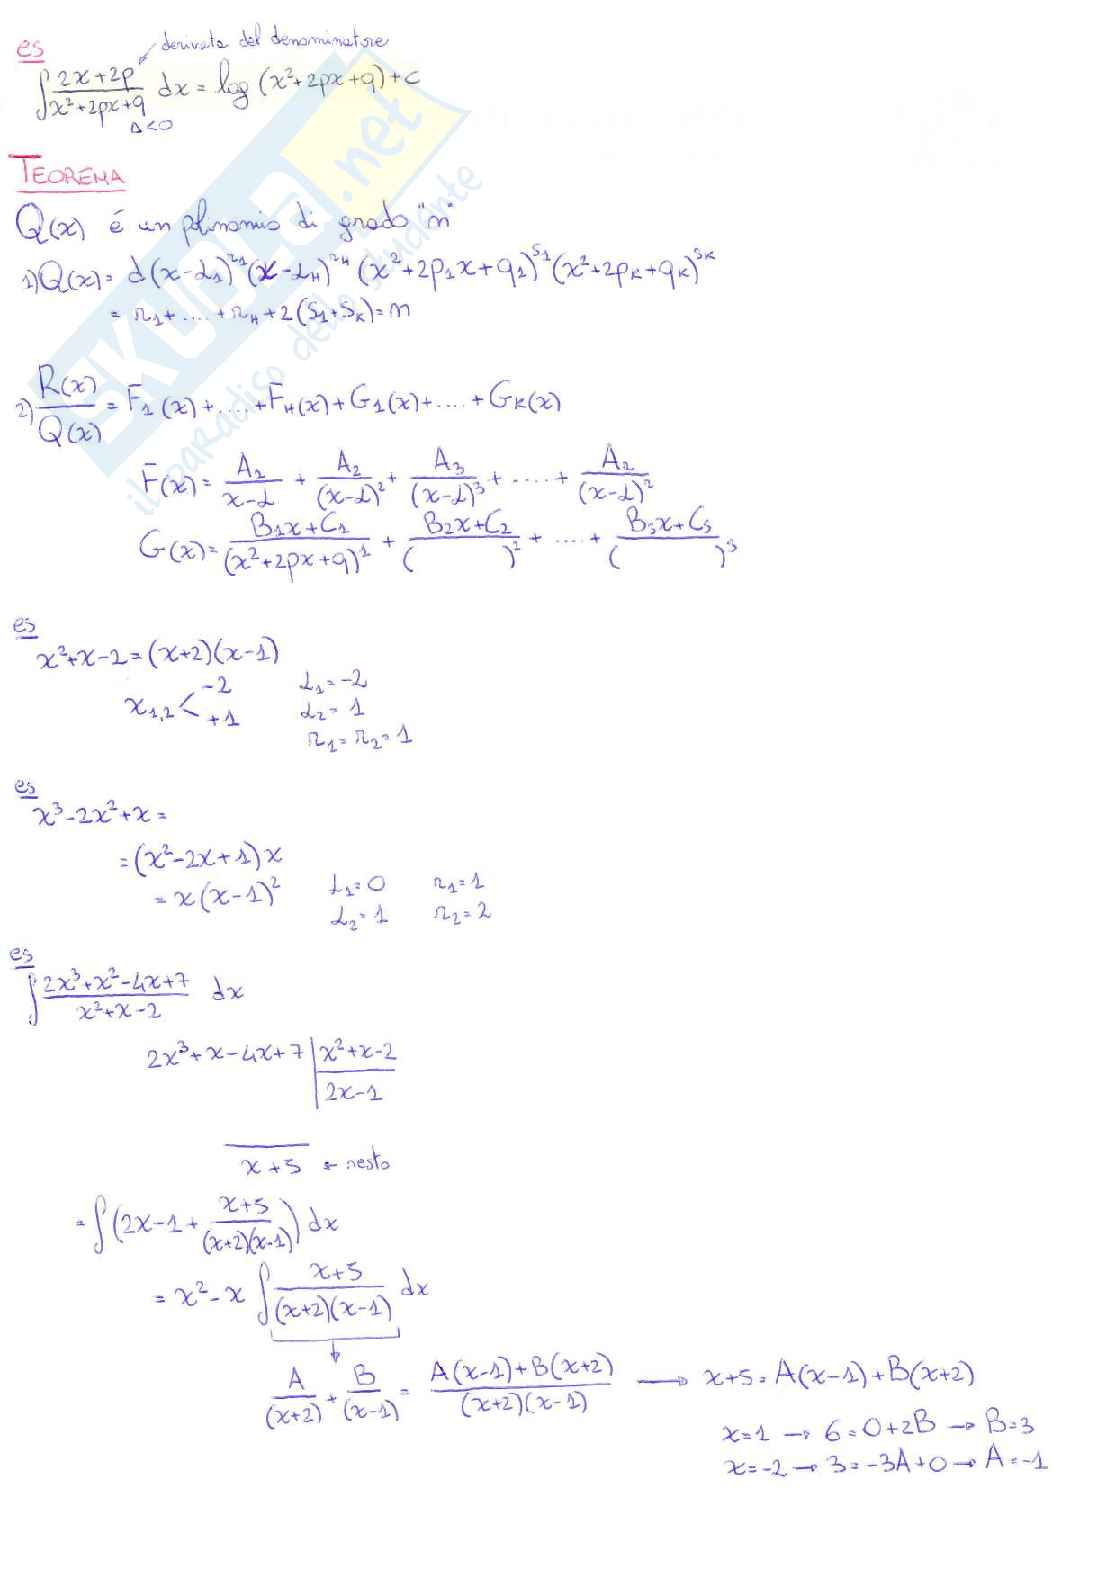 es
derivata del denominatore
∫ (2x+2p)/(x²+2px+q) dx = log (x²+2px+q)+c
Δ<0
TEOREMA
Q(x) é un polinomio di grado "n"
1) Q(x)= d(x-α₁)^r₁ (x-α_H)^r_H (x²+2p₁x+q₁)^s₁ (x²+2p_K+q_K)^s_K
= r₁+....+r_H+2(s₁+s_K)=n
2) R(x)/Q(x) = F₁(x)+....+F_H(x)+G₁(x)+....+G_K(x)
F(x)= A₁/(x-α) + A₂/(x-α)² + A₃/(x-α)³ + ....+ A₂/(x-α)²
G(x)= (B₁x+C₁)/(x²+2px+q)¹ + (B₂x+C₂)/( )² + ....+ (B_s x+C_s)/( )^s
es
x²+x-2=(x+2)(x-1)
x₁,₂ < -2 +1
α₁=-2
α₂=1
r₁=r₂=1
es
x³-2x²+x=
=(x²-2x+1)x
= x(x-1)² α₁=0 r₁=1
α₂=1 r₂=2
es
∫ (2x³+x²-4x+7)/(x²+x-2) dx
2x³+x-4x+7 | x²+x-2
2x-1
x+5 ← resto
= ∫ (2x-1+ (x+5)/((x+2)(x-1))) dx
= x²-x ∫ (x+5)/((x+2)(x-1)) dx
A/(x+2) + B/(x-1) = (A(x-1)+B(x+2))/((x+2)(x-1)) → x+5=A(x-1)+B(x+2)
x=1 → 6=0+2B → B=3
x=-2 → 3=-3A+0 → A=-1
SKUOLA.net
il paradiso dello studente